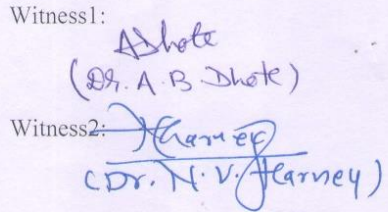 Witness1:
ADhote
(Dr. A. B. Dhote)
Witness2: Harney
(Dr. N. V. Harney)